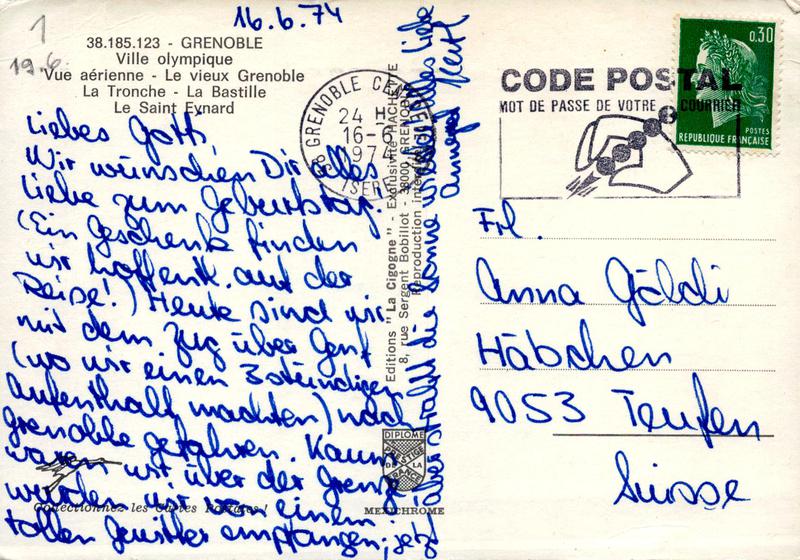 16.6.74
1
19.6.
38.185.123 - GRENOBLE
Ville olympique
Vue aérienne - Le vieux Grenoble
La Tronche - La Bastille
Le Saint Eynard
Liebes Gotti,
Wir wünschen Dir alles
Liebe zum Geburtstag.
(Ein Geschenk finden
wir hoffentl. auf der
Reise!) Heute sind wir
mit dem Zug über Genf
(wo wir einen 3stündigen
Aufenthalt machten) nach
Grenoble gefahren. Kaum
waren wir über der Grenze
wurden wir von einem
tollen Gewitter empfangen; jetzt
aber strahlt die Sonne wieder. Alles Liebe
Annegret
Collectionnez les Cartes Postales !
Editions " La Cigogne " - Exclusivité HACHETTE
8, rue Sergent Bobillot 38000 GRENOBLE
Reproduction interdite
DIPLOME
PRESTIGE
DE LA
FRANCE
MEXICHROME
38 GRENOBLE
24 H
16-6
1974
ISERE
CODE POSTAL
MOT DE PASSE DE VOTRE COURRIER
0.30
POSTES
REPUBLIQUE FRANÇAISE
Frl.
Anna Göldi
Häbchen
9053 Teufen
Suisse